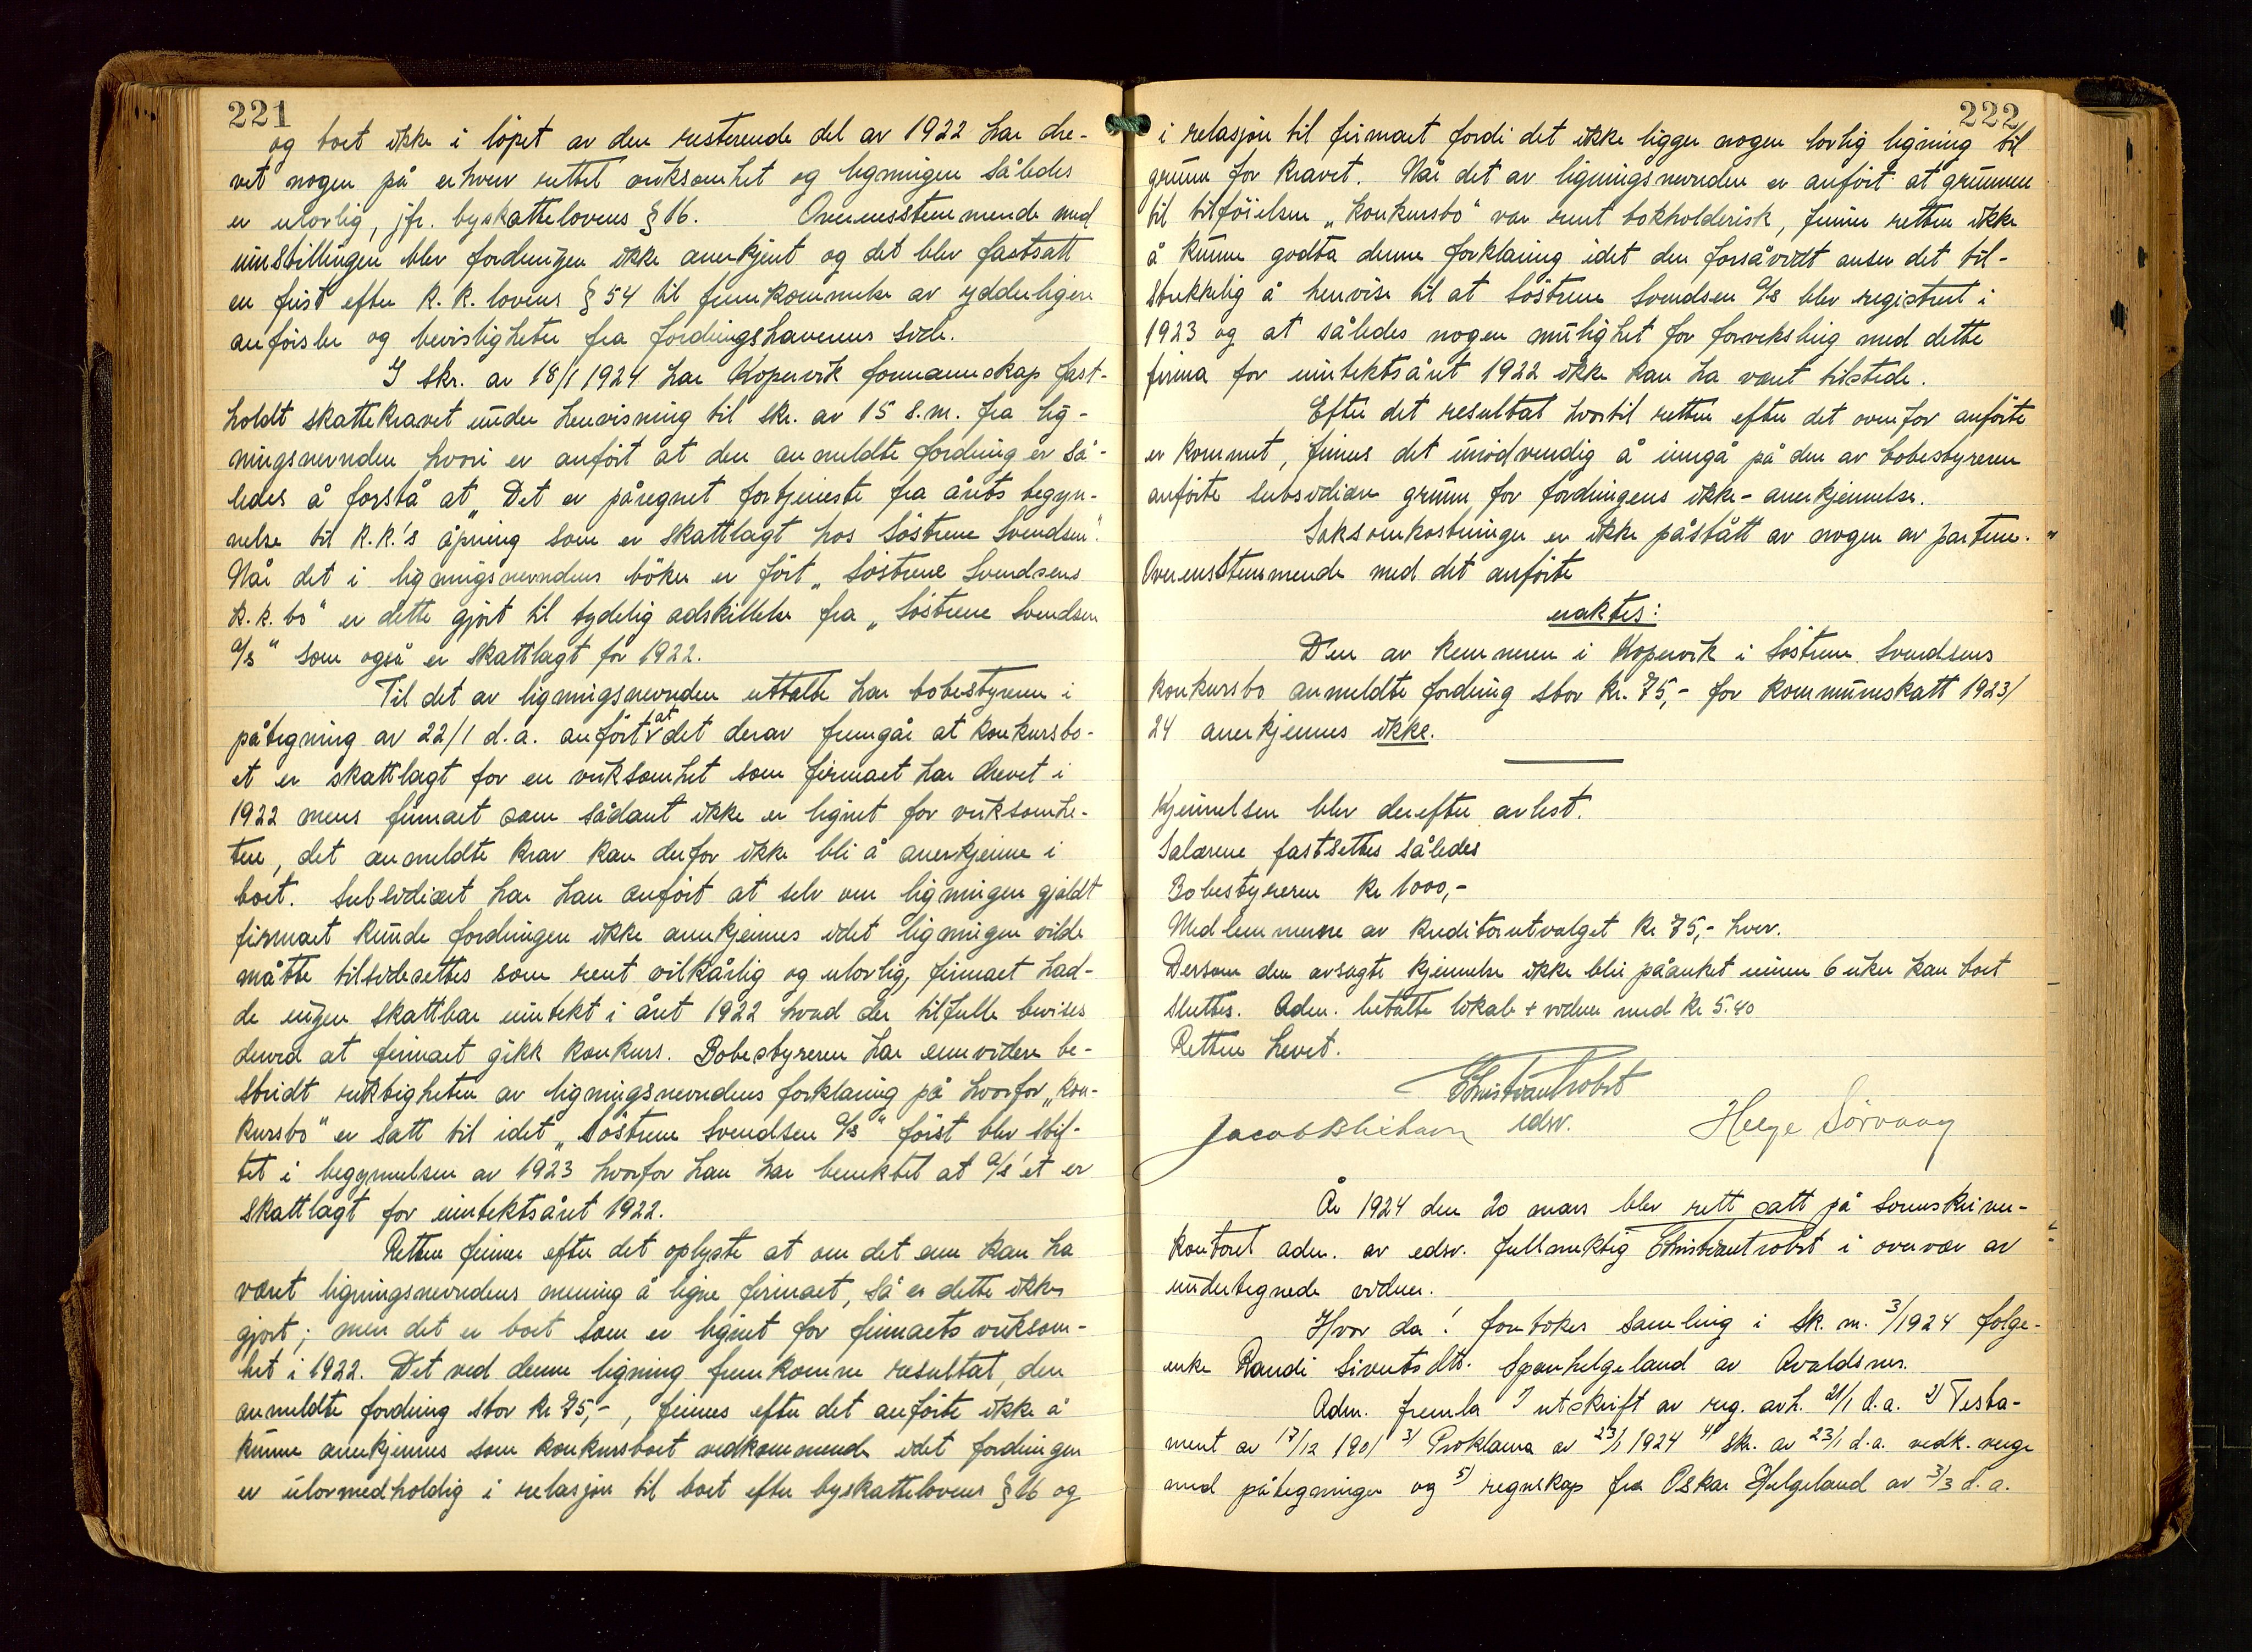 221
og boet ikke i löpet av den resterende del av 1922 har dre-
vet nogen på erhverv rettet virksomhet og ligningen således
er ulovlig, jfr. byskattelovens § 16. Overensstemmende med
innstillingen blev fordringen ikke anerkjent og det blev fastsatt
en frist efter K.K. lovens § 54 til fremkommelse av ydderligere
anförsler og bevisligheter fra fordringshaverens side.
I skr. av 18/1 1924 har Kopervik formannskap fast-
holdt skattekravet under henvisning til skr. av 15 s.m. fra lig-
ningsnevnden hvori er anfört at den anmeldte fordring er så-
ledes å forstå at „Det er påregnet fortjeneste fra årets begyn-
nelse til K.K.'s åpning som er skattlagt hos Söstrene Svendsen".
Når det i ligningsnevndens böker er fört „Söstrene Svendsens
k.k. bo" er dette gjort til tydelig adskillelse fra „Söstrene Svendsen
a/s" som også er skattlagt for 1922.
Til det av ligningsnevnden uttalte har bobestyreren i
påtegning av 22/1 d.a. anfört at det derav fremgår at konkursbo-
et er skattlagt for en virksomhet som firmaet har drevet i
1922 mens firmaet som sådant ikke er lignet for virksomhe-
ten, det anmeldte krav kan derfor ikke bli å anerkjenne i
boet. Subsidiært har han anfört at selv om ligningen gjaldt
firmaet kunde fordringen ikke anerkjennes idet ligningen vilde
måtte tilsidesettes som rent vilkårlig og ulovlig, firmaet had-
de ingen skattbar inntekt i året 1922 hvad der tilfulle bevises
derved at firmaet gikk konkurs. Bobestyreren har ennvidere be-
stridt riktigheten av ligningsnevndens forklaring på hvorfor „kon-
kursbo" er satt til idet „Söstrene Svendsen a/s" först blev stif-
tet i begynnelsen av 1923 hvorfor han har benektet at a/s'et er
skattlagt for inntektsåret 1922.
Retten finner efter det oplyste at om det enn kan ha
vært ligningsnevndens mening å ligne firmaet, så er dette ikke
gjort; men det er boet som er lignet for firmaets virksom-
het i 1922. Det ved denne ligning fremkomne resultat, den
anmeldte fordring stor kr 75,-, finnes efter det anförte ikke å
kunne anerkjennes som konkursboet vedkommende idet fordringen
er ulovmedholdig i relasjon til boet efter byskattelovens § 16 og
222
i relasjon til firmaet fordi det ikke ligger nogen lovlig ligning til
grunn for kravet. Når det av ligningsnevnden er anfört at grunnen
til tilföielsen „konkursbo" var rent bokholderisk, finner retten ikke
å kunne godta denne forklaring idet den forsåvidt anser det til-
strekkelig å henvise til at Söstrene Svendsen a/s blev registrert i
1923 og at således nogen mulighet for forveksling med dette
firma for inntektsåret 1922 ikke kan ha vært tilstede.
Efter det resultat hvortil retten efter det ovenfor anförte
er kommet, finnes det unödvendig å inngå på den av bobestyreren
anförte subsidiære grunn for fordringens ikke-anerkjennelse.
Saksomkostninger er ikke påstått av nogen av partene.
Overensstemmende med det anförte
eraktes:
Den av kemneren i Kopervik i Söstrene Svendsens
konkursbo anmeldte fordring stor kr. 75,- for kommuneskatt 1923/
24 anerkjennes ikke.
Kjennelsen blev derefter avlest.
Salærene fastsettes således
Bobestyreren kr 1000,-
Medlemmerne av kreditorutvalget kr 75,- hver.
Dersom den avsagte kjennelse ikke blir påanket innen 6 uker kan boet
sluttes. Adm. betalte lokale + vidner med kr 5.40
Retten hevet.
Christian Trobst
edsv.
Helge Sörvaag
År 1924 den 20 mars blev rett satt på sorenskriver-
kontoret adm. av edsv. fullmektig Christian Trobst i overvær av
undertegnede vidner.
Hvor da: foretokes samling i sk. m. 3/1924 fölge-
enke Randi Sivertsdtr. Spanhelgeland av Avaldsnes.
Adm. fremla 1) utskrift av reg. avh. 21/1 d.a. 2) Testa-
ment av 17/12 1901 3) Proklama av 23/1 1924 4) skr. av 23/1 d.a. vedk. verge
med påtegninger og 5) regnskap fra Oskar Helgeland av 3/3 d.a.